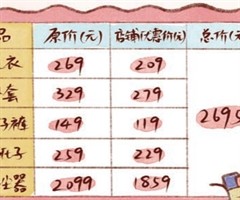 品 原价(元) 店铺优惠价(元) 总价(元
衣 269 209
套 329 279
子裤 149 119 2695
子 259 229
尘器 2099 1859